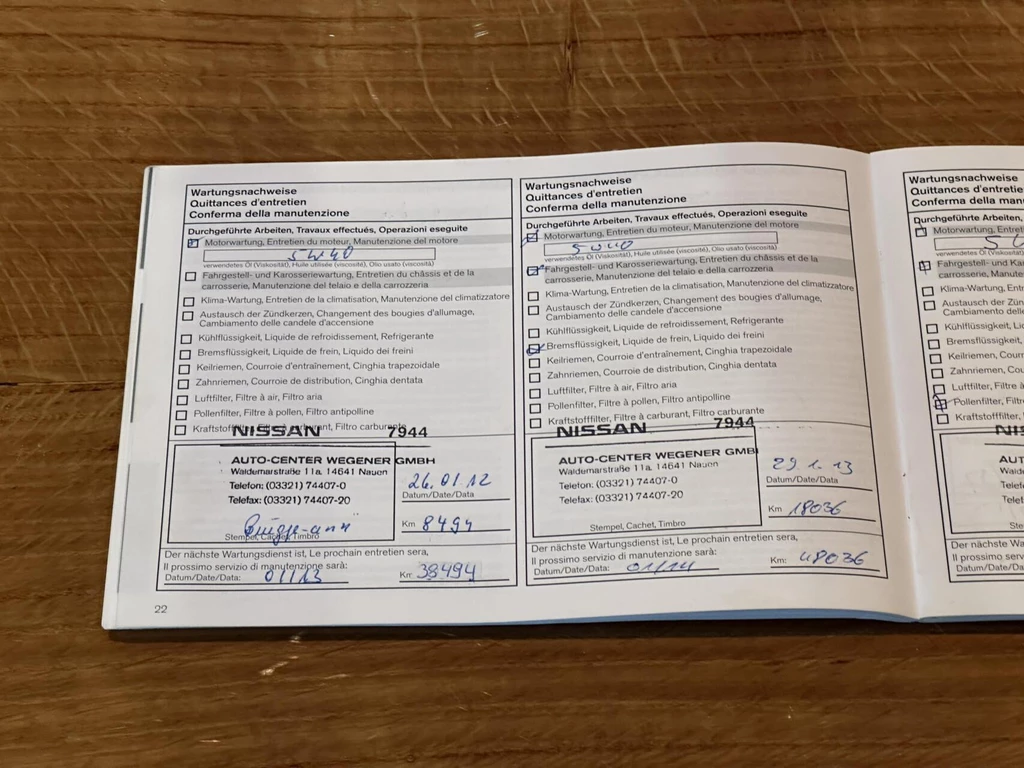 Wartungsnachweise
Quittances d'entretien
Conferma della manutenzione
Durchgeführte Arbeiten, Travaux effectués, Operazioni eseguite
Motorwartung, Entretien du moteur, Manutenzione del motore
5W40
verwendetes Öl (Viskosität), Huile utilisée (viscosité), Olio usato (viscosità)
Fahrgestell- und Karosseriewartung, Entretien du châssis et de la
carrosserie, Manutenzione del telaio e della carrozzeria
Klima-Wartung, Entretien de la climatisation, Manutenzione del climatizzatore
Austausch der Zündkerzen, Changement des bougies d'allumage,
Cambiamento delle candele d'accensione
Kühlflüssigkeit, Liquide de refroidissement, Refrigerante
Bremsflüssigkeit, Liquide de frein, Liquido dei freini
Keilriemen, Courroie d'entraînement, Cinghia trapezoidale
Zahnriemen, Courroie de distribution, Cinghia dentata
Luftfilter, Filtre à air, Filtro aria
Pollenfilter, Filtre à pollen, Filtro antipolline
Kraftstofffilter, Filtre à carburant, Filtro carburante
NISSAN 7944
AUTO-CENTER WEGENER GMBH
Waldemarstraße 11a, 14641 Nauen
Telefon: (03321) 74407-0
Telefax: (03321) 74407-20
26.01.12
Datum/Date/Data
Km 8494
Stempel, Cachet, Timbro
Der nächste Wartungsdienst ist, Le prochain entretien sera,
Il prossimo servizio di manutenzione sarà:
Datum/Date/Data: 01/13 Km: 38494
22
Wartungsnachweise
Quittances d'entretien
Conferma della manutenzione
Durchgeführte Arbeiten, Travaux effectués, Operazioni eseguite
Motorwartung, Entretien du moteur, Manutenzione del motore
5W40
verwendetes Öl (Viskosität), Huile utilisée (viscosité), Olio usato (viscosità)
Fahrgestell- und Karosseriewartung, Entretien du châssis et de la
carrosserie, Manutenzione del telaio e della carrozzeria
Klima-Wartung, Entretien de la climatisation, Manutenzione del climatizzatore
Austausch der Zündkerzen, Changement des bougies d'allumage,
Cambiamento delle candele d'accensione
Kühlflüssigkeit, Liquide de refroidissement, Refrigerante
Bremsflüssigkeit, Liquide de frein, Liquido dei freini
Keilriemen, Courroie d'entraînement, Cinghia trapezoidale
Zahnriemen, Courroie de distribution, Cinghia dentata
Luftfilter, Filtre à air, Filtro aria
Pollenfilter, Filtre à pollen, Filtro antipolline
Kraftstofffilter, Filtre à carburant, Filtro carburante
NISSAN 7944
AUTO-CENTER WEGENER GMB
Waldemarstraße 11a, 14641 Nauen
Telefon: (03321) 74407-0
Telefax: (03321) 74407-20
29.1.13
Datum/Date/Data
Km 18036
Stempel, Cachet, Timbro
Der nächste Wartungsdienst ist, Le prochain entretien sera,
Il prossimo servizio di manutenzione sarà:
Datum/Date/Data: 01/14 Km: 48036
Wartungsnachweise
Quittances d'entretie
Conferma della manu
Durchgeführte Arbeiten,
Motorwartung, Entret
5
Fahrgestell- und Karo
carrosserie, Manuten
Klima-Wartung, Entr
Austausch der Zünd
Cambiamento delle
Kühlflüssigkeit, Liqu
Bremsflüssigkeit, L
Keilriemen, Courro
Zahnriemen, Cou
Luftfilter, Filtre à
Pollenfilter, Filtre
Kraftstofffilter, F
NIS
AUT
Wald
Telef
Telef
Der nächste Wa
Il prossimo ser
Datum/Date/Da